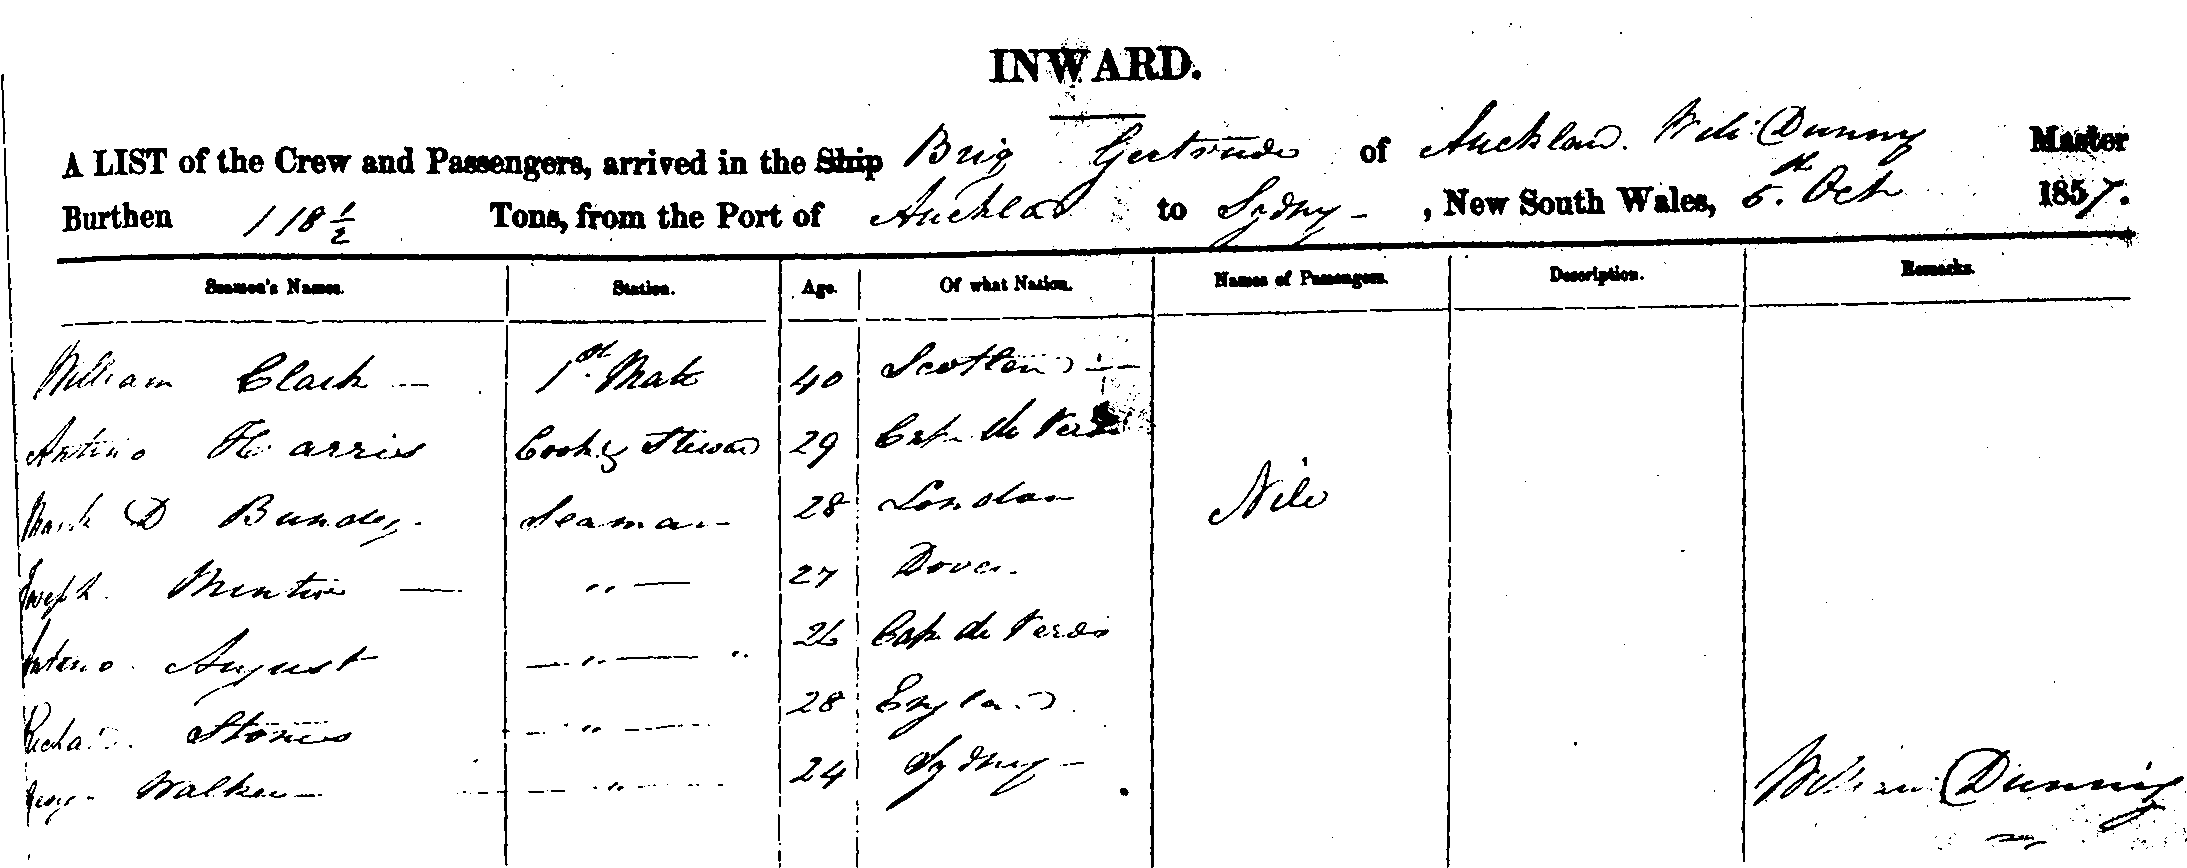 INWARD.
A LIST of the Crew and Passengers, arrived in the Ship Brig Gertrude of Auckland. Dunning Master
Burthen 118 1/2 Tons, from the Port of Auckland to Sydny - , New South Wales, 5th Oct 1857.
Seamen's Names. Station. Age. Of what Nation. Names of Passengers. Description. Remarks.
William Clark — 1st Mate 40 Scotland —
Antino Harris Cook & Steward 29 Cape de Verd
Mark D Bundey Seaman 28 London Nile
Joseph „ — 27 Dover
Antino August — „ — „ 26 Cape de Verds
Richard Stones - „ — 28 England
George Walker — — „ — 24 Sydny —
William Dunning